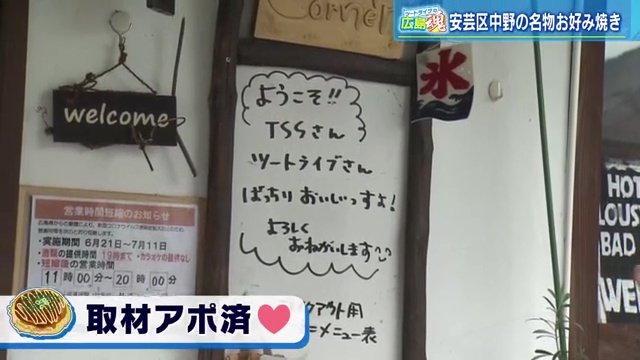 ツートライブの
広島魂
安芸区中野の名物お好み焼き
Corner
welcome
ようこそ!!
TSSさん
ツートライブさん
ばっちり おいしいっすよ!
よろしく
おねがいします??
氷
営業時間短縮のお知らせ
・実施期間 6月21日〜7月11日
・酒類の提供時間 19時まで ・カラオケの提供なし
・短縮後の営業時間
11時00分〜20時00分
クアウト用
メニュー表
HOT
LOUS
BAD
WE
取材アポ済